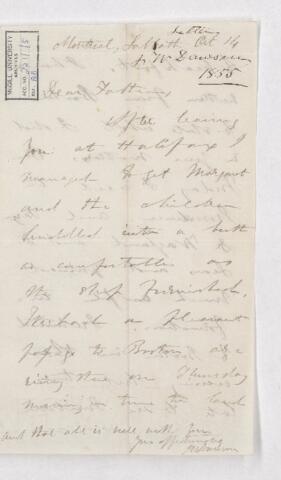 McGILL UNIVERSITY
ARCHIVES
ACC. NO.
REF.
Letter
Montreal, Sabbath Oct 14
J W Dawson
1855
Dear Father,
After leaving
you at Halifax I
managed to get Margaret
and the children
installed into a berth
as comfortable as
the ship furnished.
We had a pleasant
passage to Boston
there on Thursday
morning in time to
and that all is well with you
Yrs affectionately